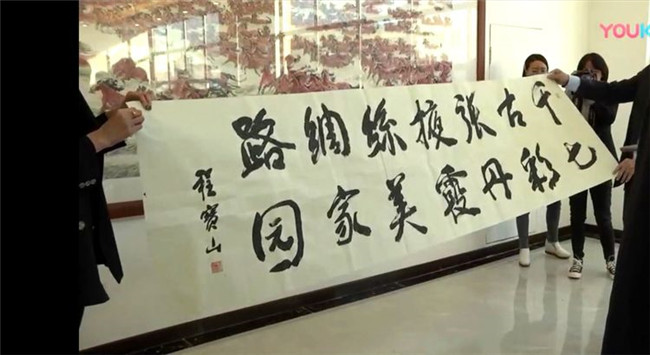 YOUK
千古張掖絲綢路
七彩丹霞美家园
程寶山